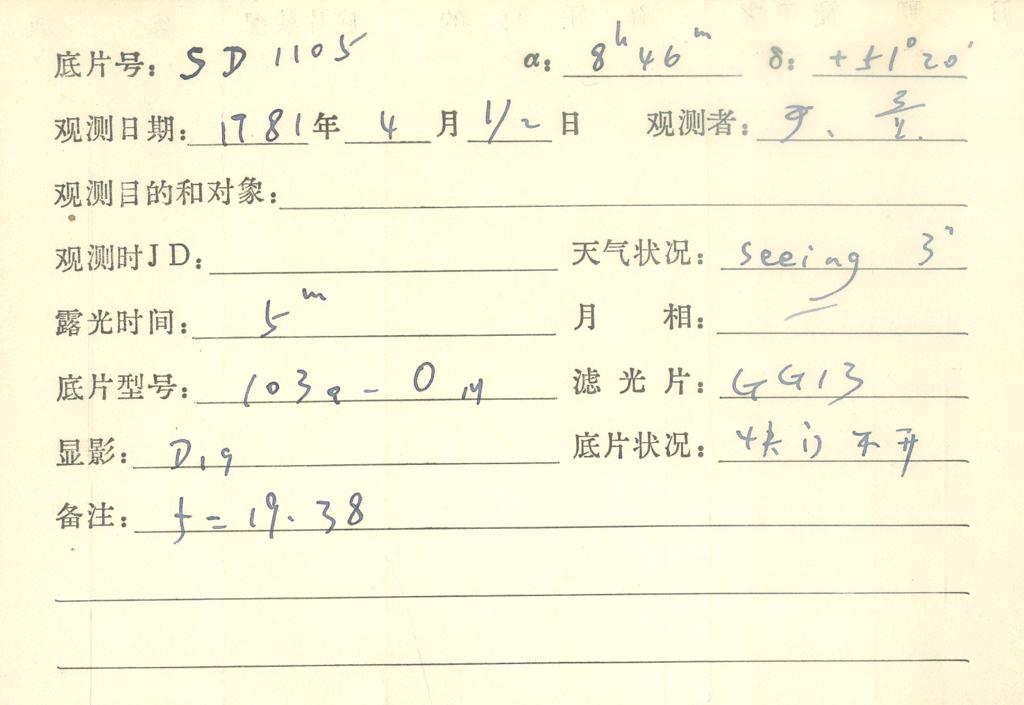 底片号: SD 1105 α: 8ʰ 46ᵐ δ: +51°20′
观测日期: 1981年 4 月 1/2 日 观测者:
观测目的和对象:
观测时JD: 天气状况: seeing 3″
露光时间: 5ᵐ 月 相:
底片型号: 103a-O 滤光片: GG13
显影: D19 底片状况: 快门不开
备注: f=19.38